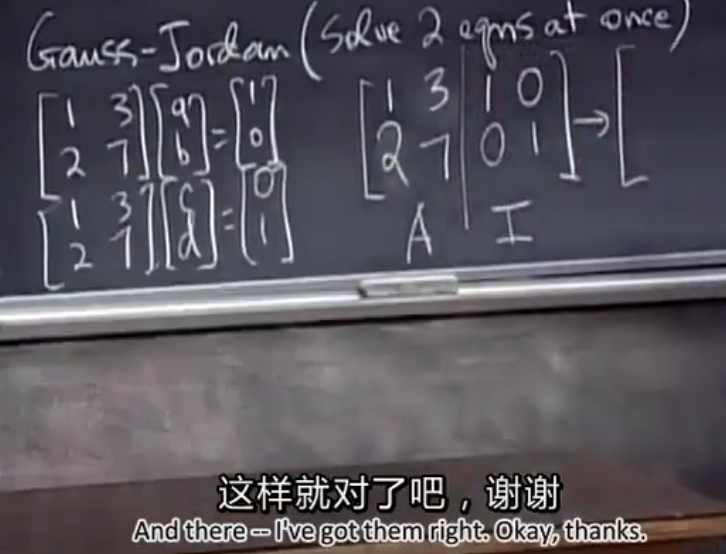 Gauss-Jordan (Solve 2 eqns at once)
[1 3; 2 7] [a; b] = [1; 0]
[1 3; 2 7] [c; d] = [0; 1]
[1 3 | 1 0; 2 7 | 0 1] → [
A I
这样就对了吧，谢谢
And there -- I've got them right. Okay, thanks.